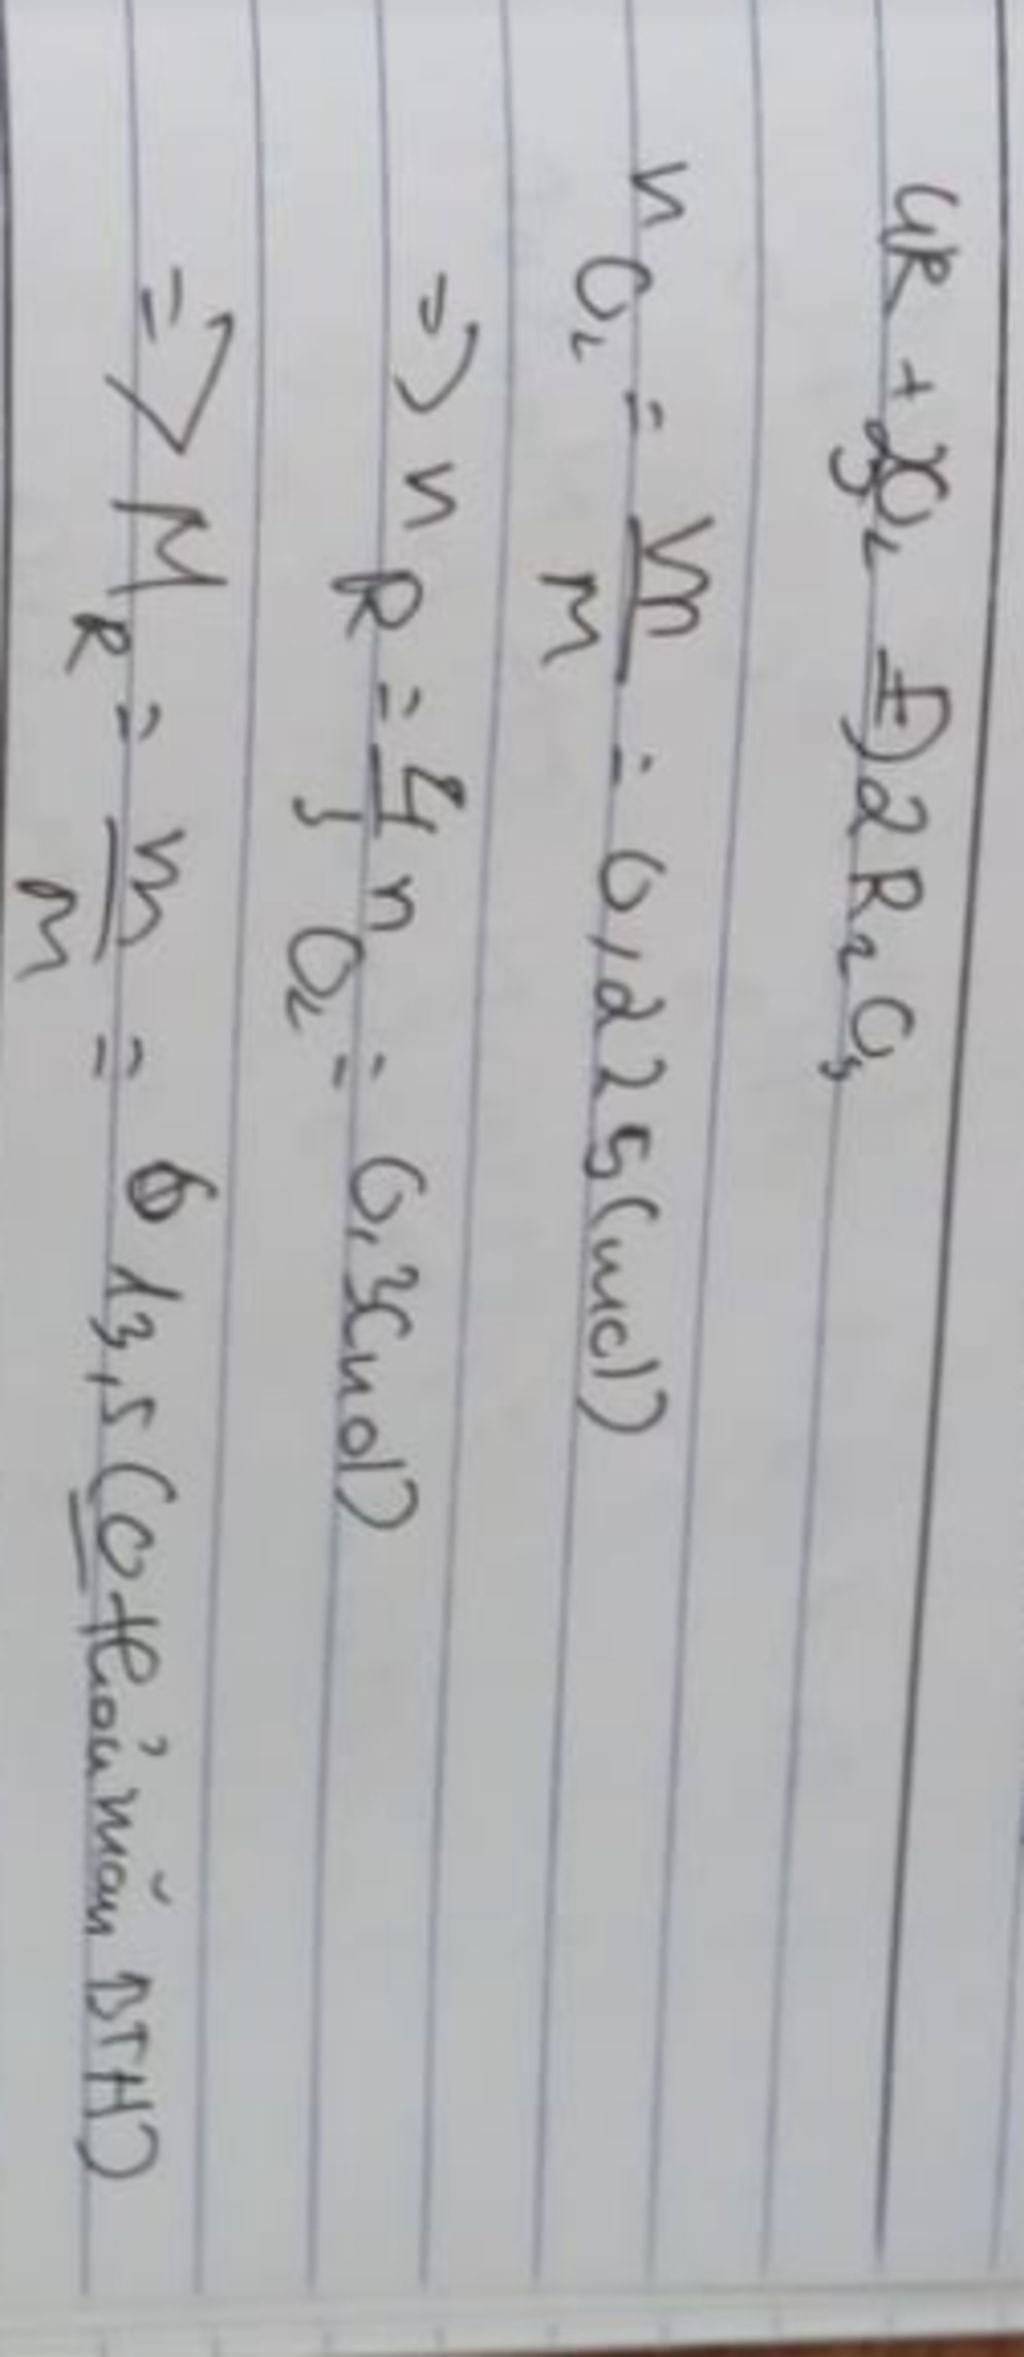 4R + 3O₂ →(t°) 2R₂O₃
n O₂ = m/M = 0,225 (mol)
=> n R = 4/3 n O₂ = 0,3 (mol)
=> M R = m/M = 13,5 (0 thoả mãn BTH)